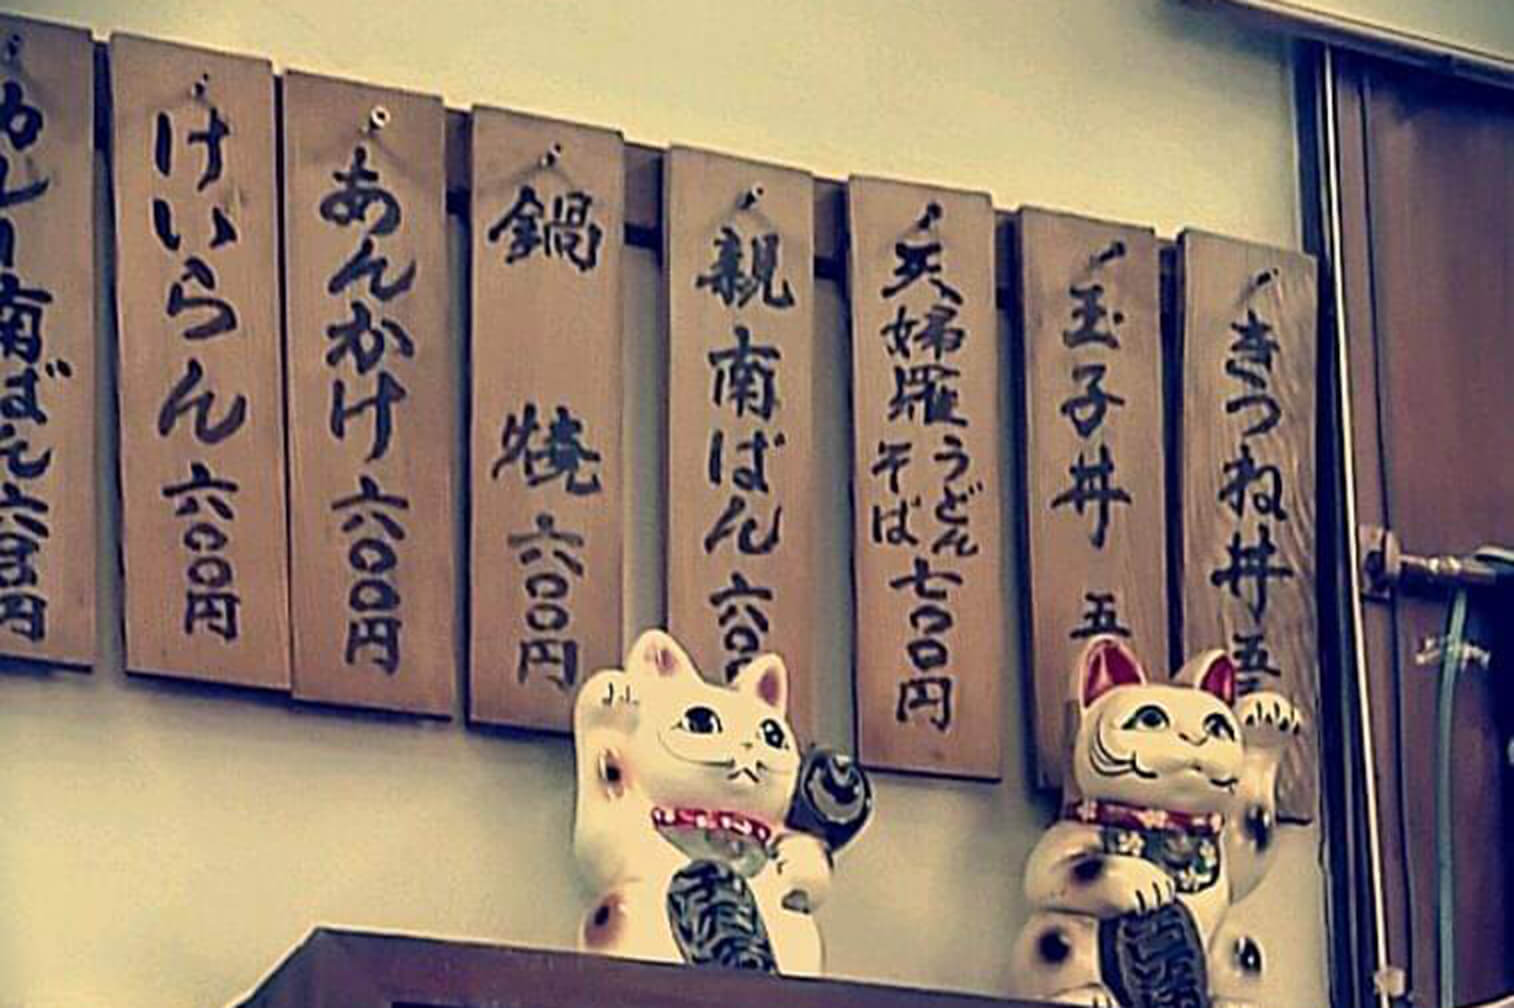 きつね丼 五
玉子丼 五
天婦羅 うどん そば 七〇〇円
親南ばん 六〇〇
鍋焼 六〇〇円
あんかけ 六〇〇円
けいらん 六〇〇円
カレー南ばん 六〇〇円